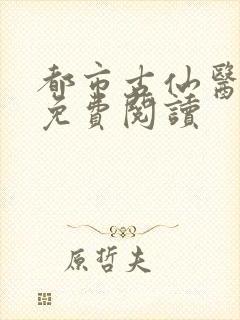 都市古仙醫
免費閱讀
原哲夫